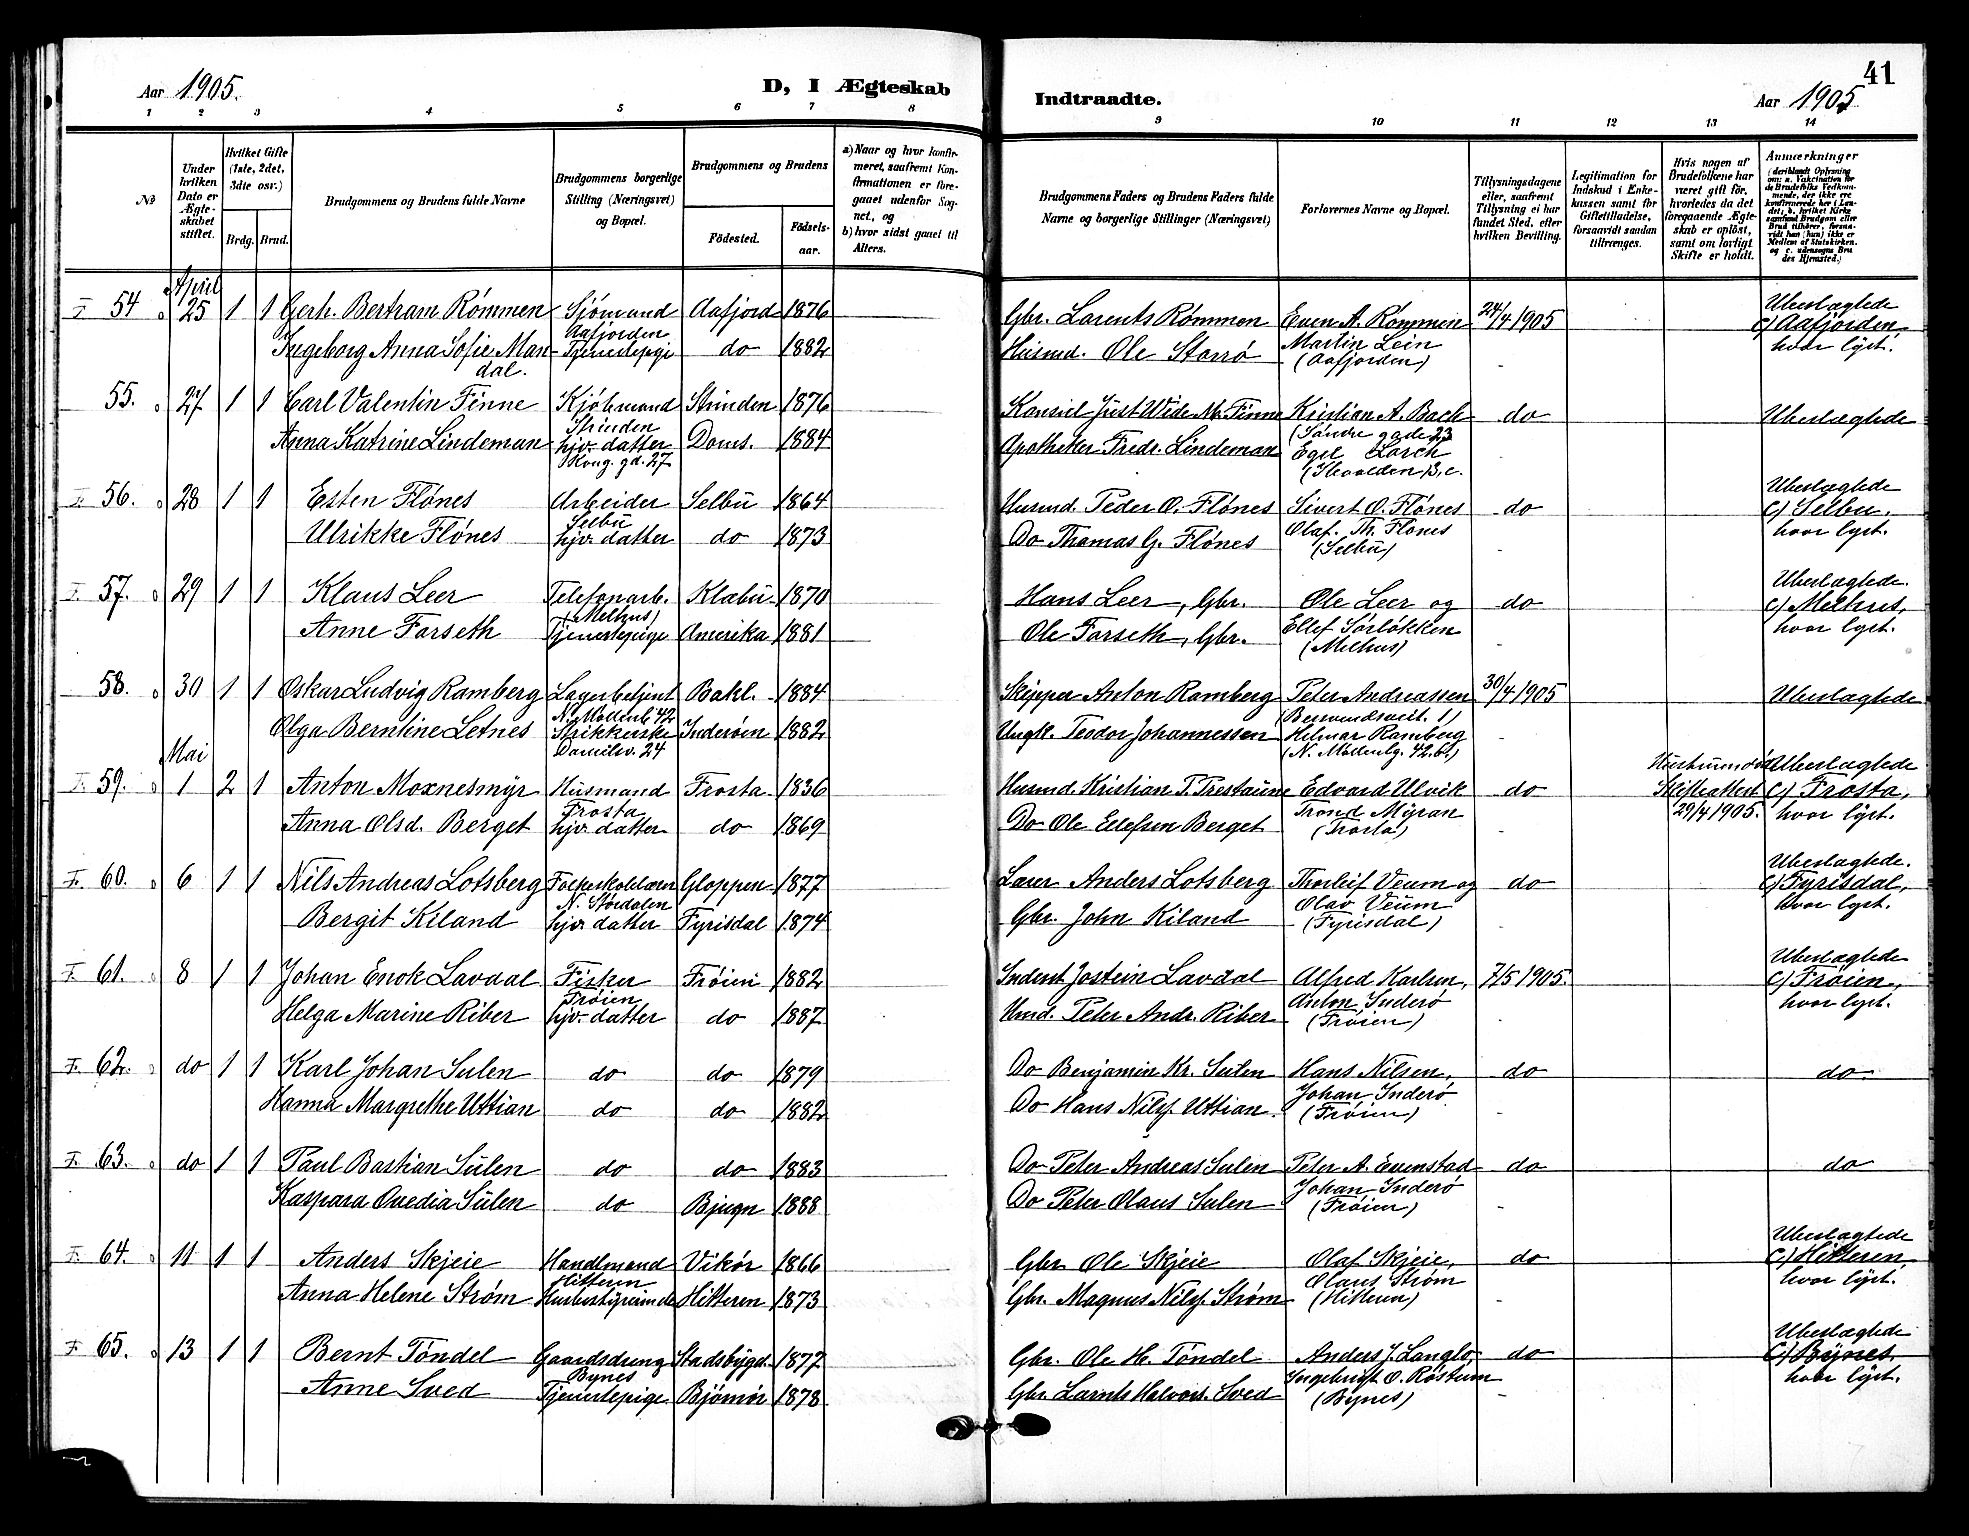 41
Aar 1905. D, I Ægteskab Indtraadte. Aar 1905
1 2 3 4 5 6 7 8 9 10 11 12 13 14
No
Under hvilken Dato er Ægteskabet stiftet.
Hvilket Gifte (1ste, 2det, 3die osv.)
Brdg. Brud.
Brudgommens og Brudens fulde Navne
Brudgommens borgerlige Stilling (Næringsvei) og Bopæl.
Brudgommens og Brudens
Fødested. Fødselsaar.
a) Naar og hvor konfirmeret, saafremt Konfirmationen er foregaaet udenfor Sognet, og
b) hvor sidst gaaet til Alters.
Brudgommens Faders og Brudens Faders fulde Navne og borgerlige Stillinger (Næringsvei)
Forlovernes Navne og Bopæl.
Tillysningsdagene eller, saafremt Tillysning ei har fundet Sted, efter hvilken Bevilling.
Legitimation for Indskud i Enkekassen samt for Giftetilladelse, forsaavidt saadan tiltrænges.
Hvis nogen af Brudefolkene har været gift før, hvorledes da det foregaaende Ægteskab er opløst, samt om lovligt Skifte er holdt.
Anmærkninger (deriblandt Oplysning om: a. Vakcination for de Brudefolks Vedkommende, der ikke ere konfirmerede her i Landet, b. hvilket Kirkesamfund Brudgom eller Brud tilhører, forsaavidt han (hun) ikke er Medlem af Statskirken, og c. udensogns Brudes Hjemsted.)
April
F. 54 25 1 1 Gerh. Bertram Rømmen Sjömand Aafjord 1876 Gbr. Larents Rømmen Even A. Rømmen 24/4 1905 Ubeslægtede
Aafjorden Martin Lein c) Aafjorden,
Ingeborg Anna Sofie Mandal. Tjenestepige do 1882 Husmd. Ole Storrø (Aafjorden) hvor lyst.
55. 27 1 1 Carl Valentin Finne Kjöbmand Strinden 1876 Konsul Just Wide M. Finne Kristian A. Bach do Ubeslægtede
Strinden (Søndre gade 23
Anna Katrine Lindeman hjv. datter Doms. 1884 Apotheker Fredr. Lindeman Egil Lorch
Kong. gd. 27
F. 56. 28 1 1 Esten Flönes Arbeider Selbu 1864 Husmd. Peder O. Flönes Sivert O. Flönes do Ubeslægtede
Selbu Olaf Th. Flönes c) Selbu,
Ulrikke Flönes hjv. datter do 1873 Do Thomas G. Flönes (Selbu) hvor lyst.
F. 57. 29 1 1 Klaus Leer Telefonarb. Klæbu 1870 Hans Leer, Gbr. Ole Leer og do Ubeslægtede.
(Melhus) Ellef Sörlökken c) Melhus,
Anne Forseth Tjenestepige Amerika 1881 Ole Forseth, Gbr. (Melhus) hvor lyst.
58. 30 1 1 Oskar Ludvig Ramberg Lagerbetjent Bakl. 1884 Skipper Anton Ramberg Peter Andreassen 30/4 1905 Ubeslægtede
N. Möllenb. 42
Olga Berntine Letnes Strikkerske Inderøen 1882 Ungk. Teodor Johannessen Hilmar Ramberg
Danielsv. 24 (N. Mølenbg. 42.b.)
Mai
F. 59. 1 2 1 Anton Moxnesmyr Husmand Frosta 1836 Husmd Kristian P. Trestaune Edvard Ulvik do Ubeslægtede
Frosta Trond Myran Skifteattest c) Frosta,
Anna Olsd. Berget hjv. datter do 1869 Do Ole Ellefsen Berget (Frosta) 29/4 1905. hvor lyst.
F. 60. 6 1 1 Nils Andreas Lotsberg Gloppen 1877 Lærer Anders Lotsberg Thorleif Veum og do Ubeslægtede.
N. Størdalen Olav Veum c) Fyrisdal,
Bergit Kiland hjv. datter Fyrisdal 1874 Gbr. John Kiland (Fyrisdal) hvor lyst.
F. 61. 8 1 1 Johan Enok Lavdal Fisker Frøien 1882 Inderst Jostein Lavdal Alfred Karlsen, 7/5 1905. Ubeslægtede
Frøien Anton Inderø c) Frøien,
Helga Marine Riber hjv. datter do 1887 Peter Andr. Riber (Frøien) hvor lyst.
F. 62. do 1 1 Karl Johan Sulen do do 1879 Do Benjamin Kr. Sulen Hans Nilsen, do do
Johan Inderø
Hanna Margrethe Uttian do do 1882 Do Hans Nils. Uttian (Frøien)
F. 63. do 1 1 Paul Bastian Sulen do do 1883 Do Peter Andreas Sulen Peter A. Evenstad do do
Johan Inderø
Kaspara Ovedia Sulen do Bjugn 1888 Do Peter Olaus Sulen (Frøien)
F. 64. 11 1 1 Anders Skjeie Handlmand Vikør 1866 Gbr. Ole Skjeie Olaf Skjeie, do Ubeslægtede
Hitteren Olaus Strøm c) Hitteren,
Anna Helene Strøm Husbestyrerinde Hitteren 1873 Gbr. Magnus Nils. Strøm (Hitteren) hvor lyst.
F. 65. 13 1 1 Bernt Töndel Gaardsdreng Stadsbygd. 1877 Gbr. Ole H. Töndel Anders J. Langlo, do Ubeslægtede
Bynes Ingebrigt O. Röstum c) Bynes,
Anne Sved Tjenestepige Bjömör 1878 Gbr. Larnts Halvors. Sved (Bynes) hvor lyst.